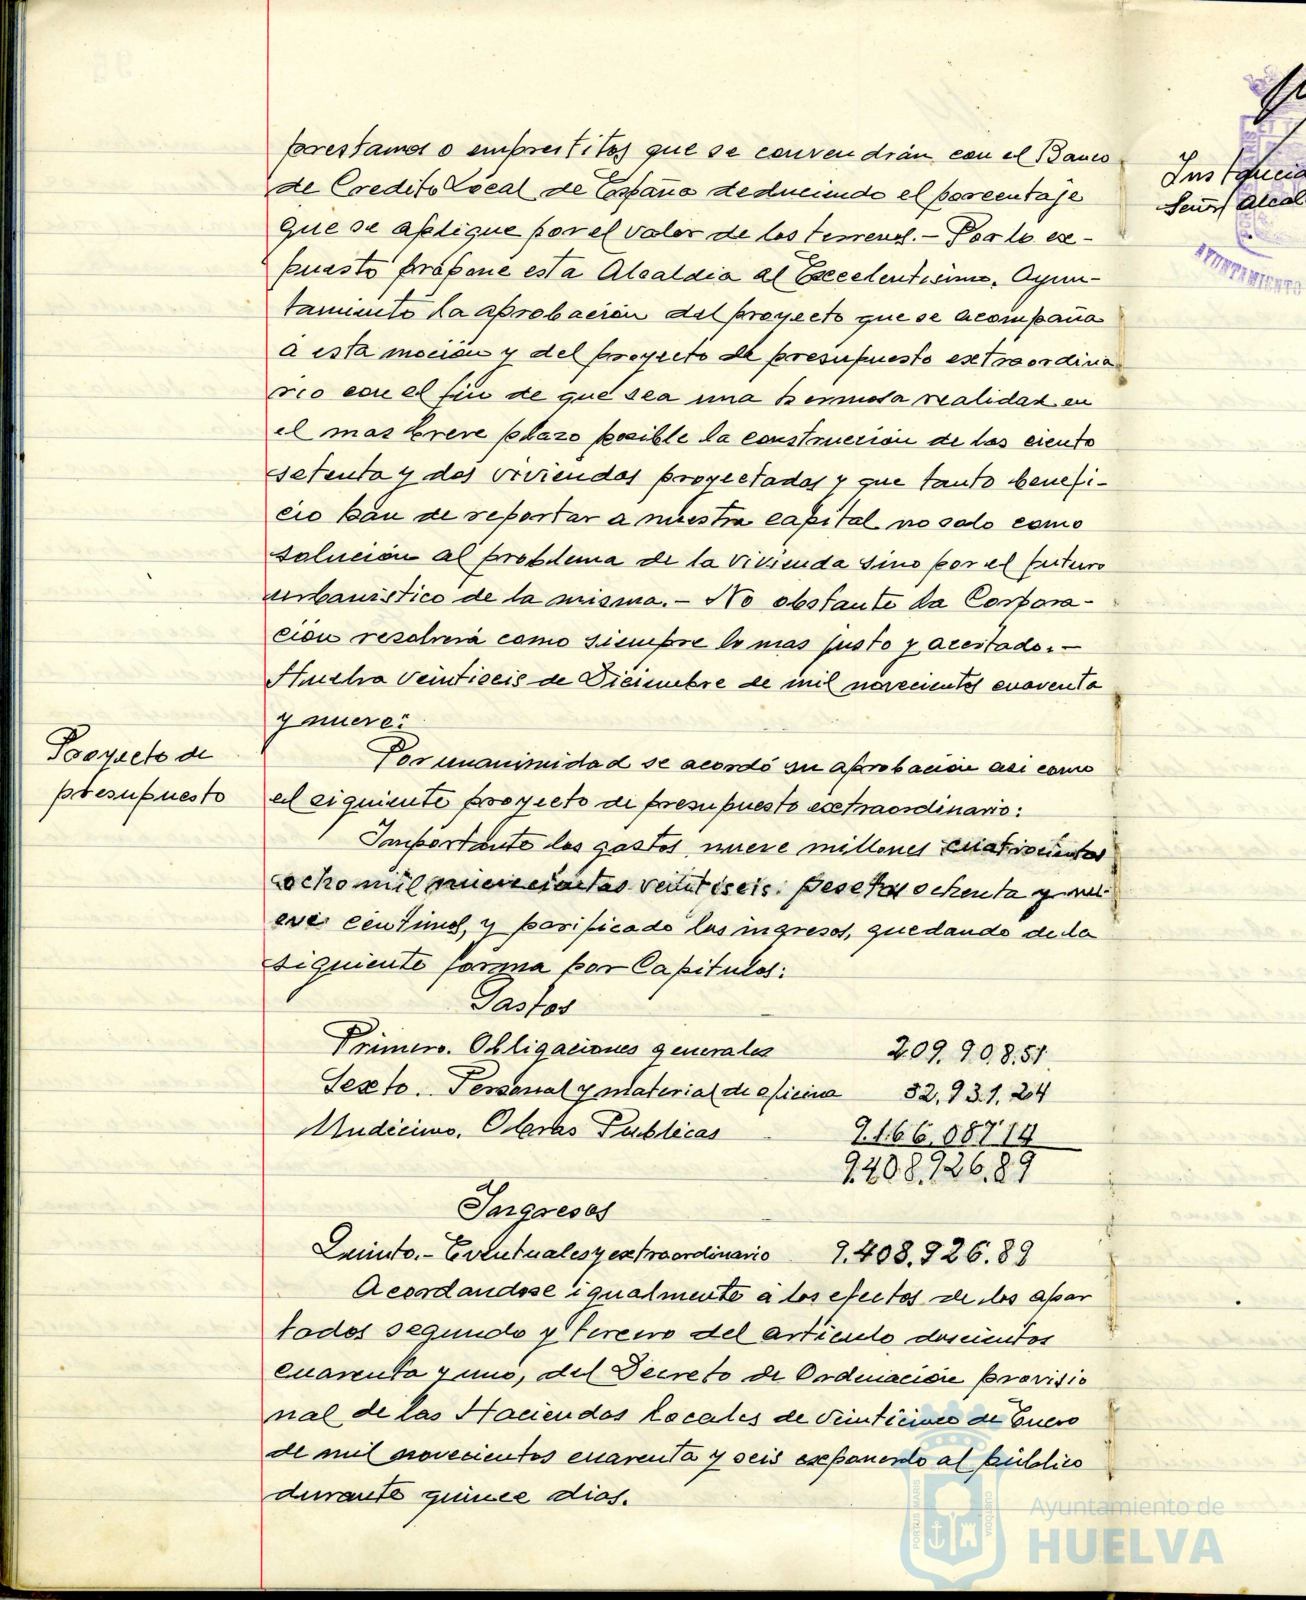 prestamos o emprestitos que se convendrán con el Banco
de Credito Local de España deduciendo el porcentaje
que se aplique por el valor de los terrenos.- Por lo ex-
puesto propone esta Alcaldia al Excelentisimo. Ayun-
tamiento la aprobación del proyecto que se acompaña
á esta moción y del proyecto de presupuesto extraordina
rio con el fin de que sea una hermosa realidad en
el mas breve plazo posible la construcción de las ciento
setenta y dos viviendas proyectadas y que tanto benefi-
cio han de reportar a nuestra capital no solo como
solución al problema de la vivienda sino por el futuro
urbanistico de la misma.- No obstante la Corpora-
ción resolverá como siempre lo mas justo y acertado.-
Huelva veintiseis de Diciembre de mil novecientos cuarenta
y nueve:
Proyecto de
presupuesto
Por unanimidad se acordó su aprobación asi como
el siguiente proyecto de presupuesto extraordinario:
Importante los gastos nueve millones cuatrocientos
ocho mil novecientas veintiseis pesetas ochenta y nu-
eve centimos, y parificado los ingresos, quedando de la
siguiente forma por Capitulos:
Gastos
Primero. Obligaciones generales 209.908.51
Sexto. Personal y material de oficina 32.931.24
Undecimo. Obras Publicas 9.166.087 14
9.408.926.89
Ingresos
Quinto.- Eventuales y extraordinario 9.408.926.89
Acordandose igualmente á los efectos de los apar
tados segundo y tercero del articulo doscientos
cuarenta y uno, del Decreto de Ordenación provisio
nal de las Haciendas locales de veinticinco de Enero
de mil novecientos cuarenta y seis exponerlo al público
durante quince dias.
Instancia
Señor Alcal
AYUNTAMIENTO
PORTUS MARIS
CUSTODIA
Ayuntamiento de
HUELVA